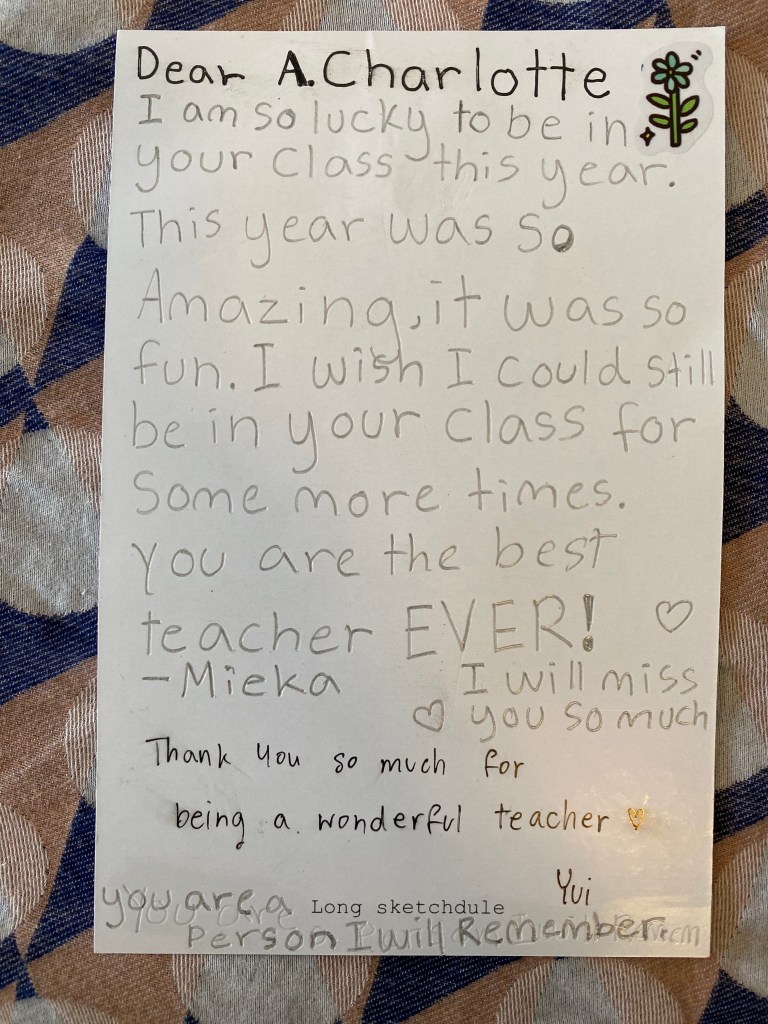 Dear A. Charlotte
I am so lucky to be in
your class this year.
This year was so
Amazing, it was so
fun. I wish I could still
be in your class for
some more times.
You are the best
teacher EVER!
-Mieka
I will miss
you so much
Thank you so much for
being a wonderful teacher
Yui
you are a
Long sketchdule
person I will Remember.